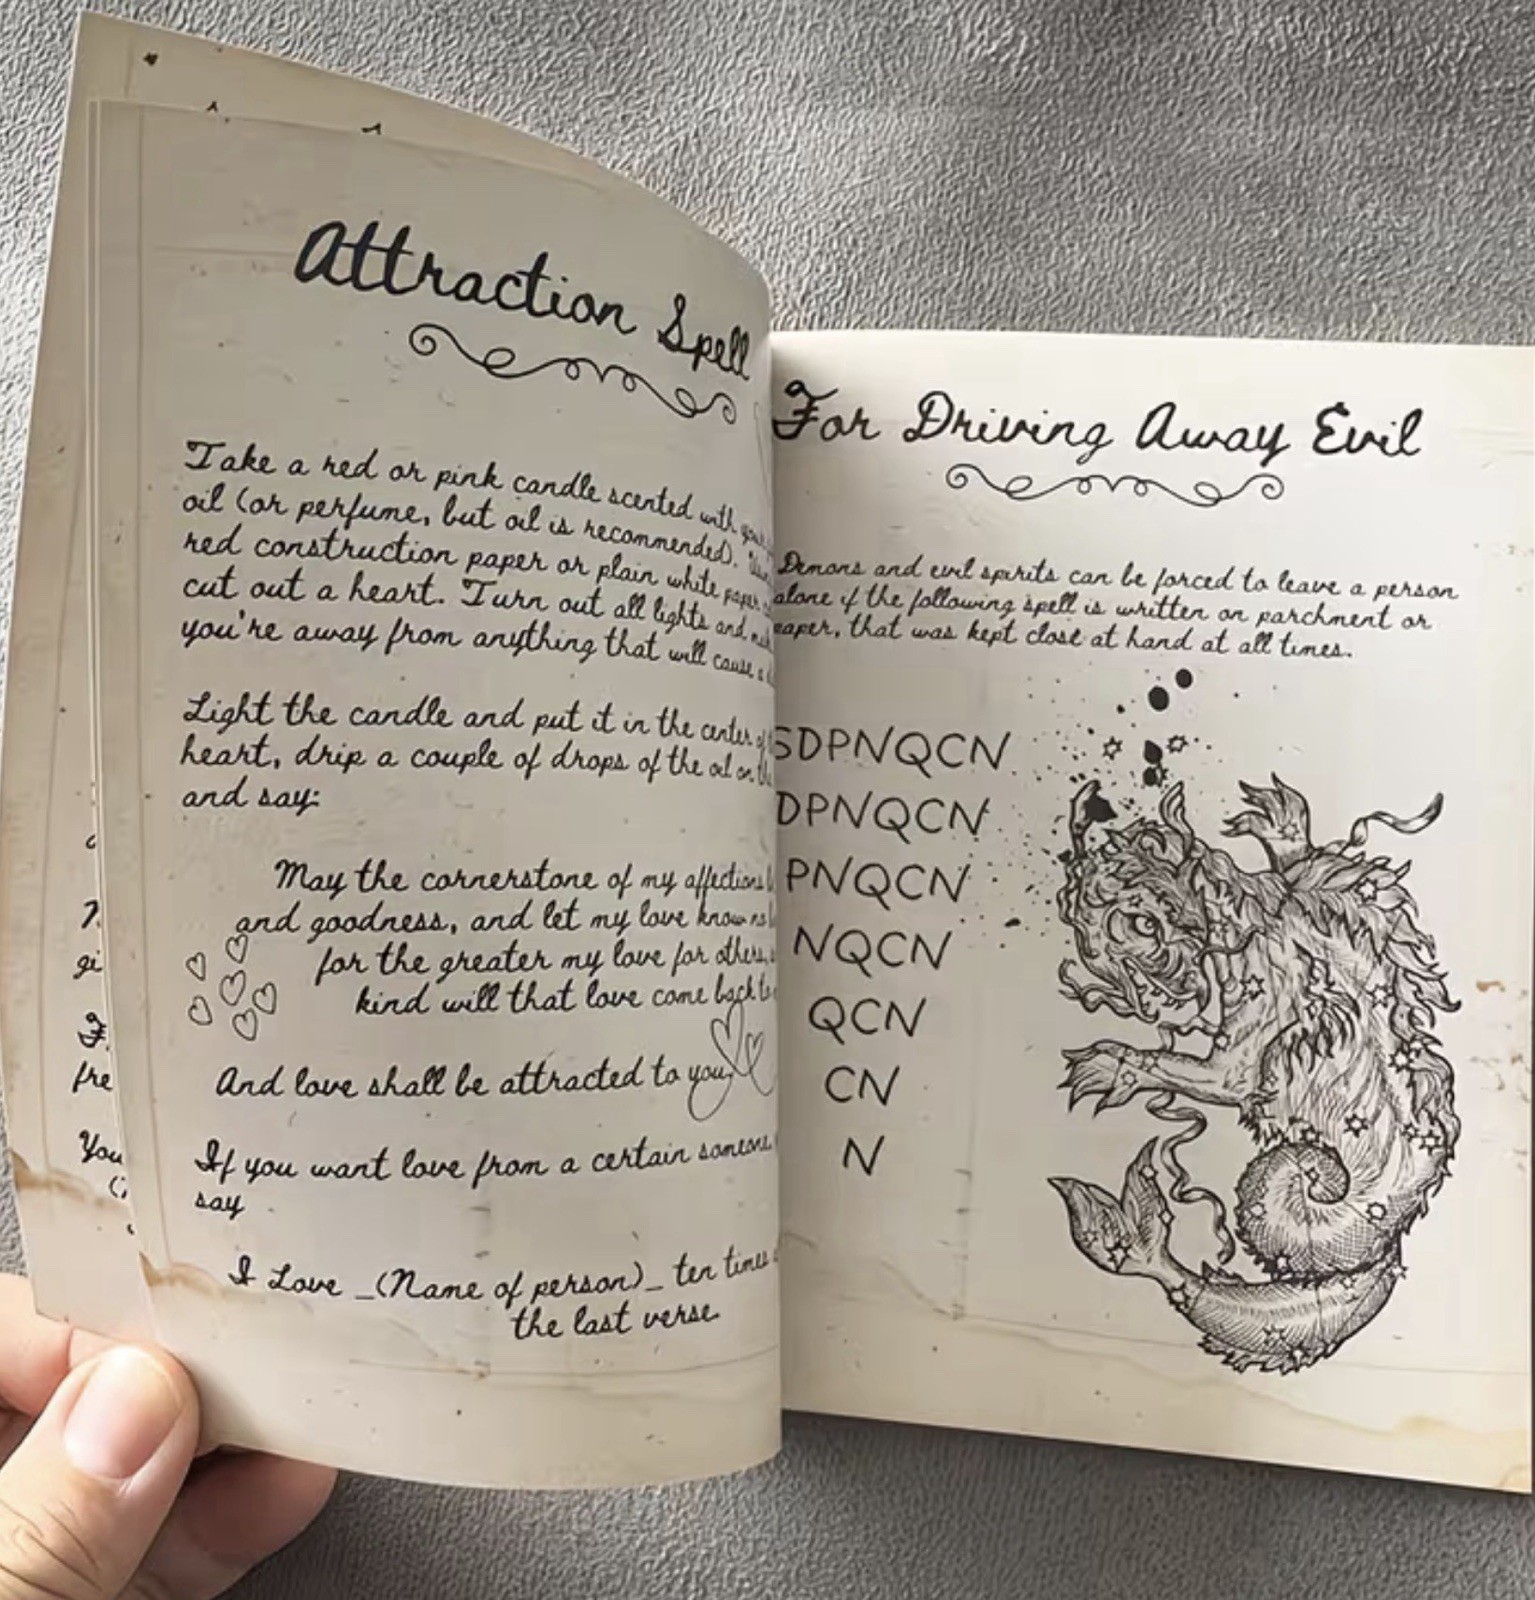 Attraction Spell
Take a red or pink candle scented with
oil (or perfume, but oil is recommended).
red construction paper or plain white paper
cut out a heart. Turn out all lights and
you're away from anything that will cause a
Light the candle and put it in the center of
heart, drip a couple of drops of the oil on
and say:
May the cornerstone of my affections
and goodness, and let my love know no
for the greater my love for others,
kind will that love come back to
And love shall be attracted to you.
If you want love from a certain someone
say
I Love _(Name of person)_ ten times
the last verse
gi
fre
You
For Driving Away Evil
Demons and evil spirits can be forced to leave a person
alone if the following spell is written on parchment or
paper, that was kept close at hand at all times.
SDPNQCN
DPNQCN
PNQCN
NQCN
QCN
CN
N